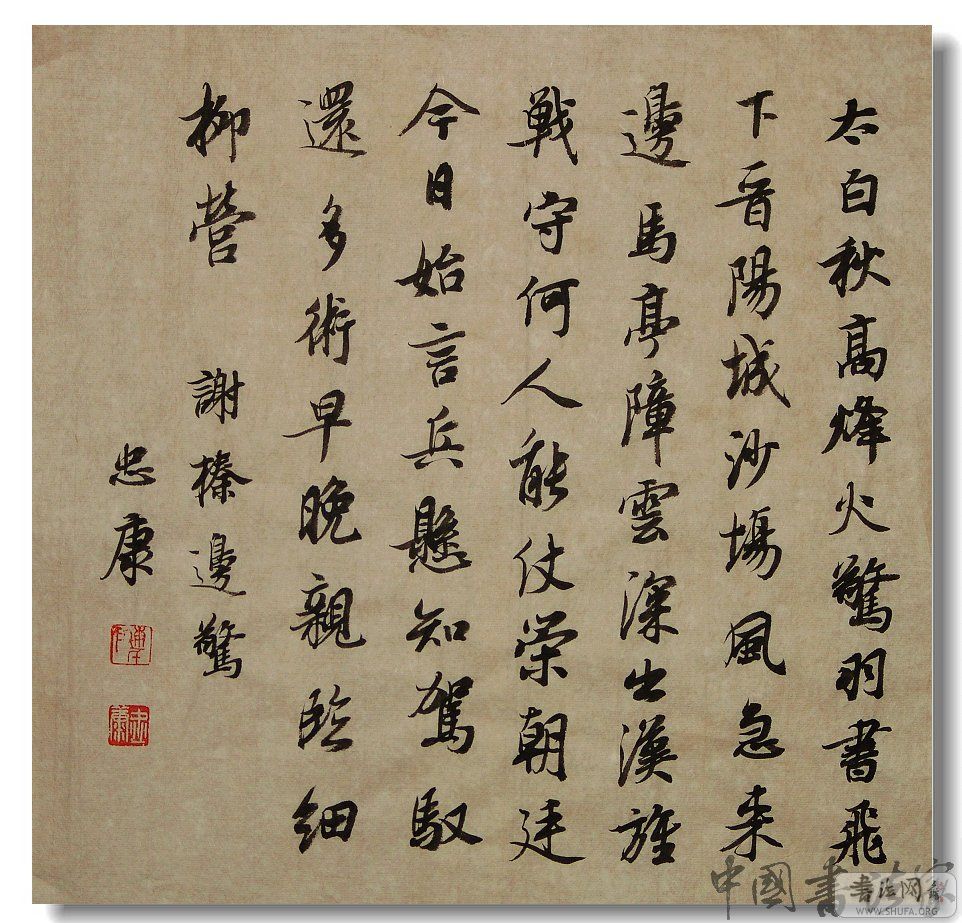 太白秋高烽火驚羽書飛
下晋陽城沙塲風急来
邊馬亭障雲深出漢旌
戦守何人能仗榮朝廷
今日始言兵懸知駕馭
還多術早晚親臨細
柳營 謝榛邊驚
忠康
忠康
中國書法家
书法网
WWW.SHUFA.ORG